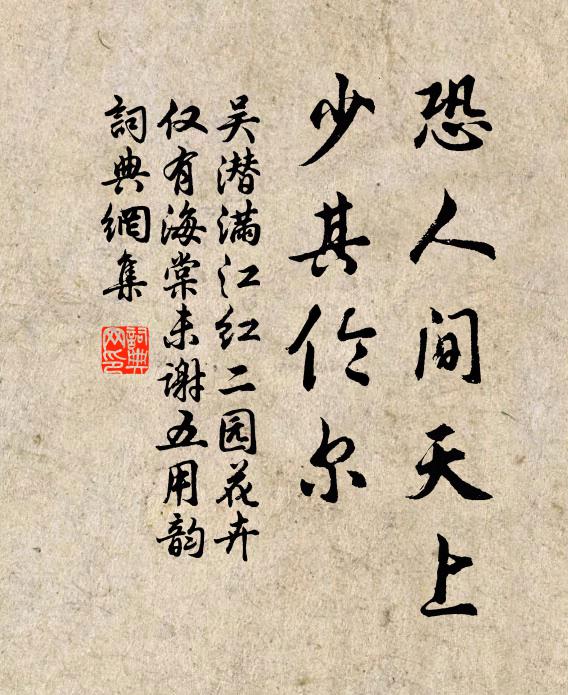 恐人间天上
少其伦尔
吴潜满江红二园花卉
仅有海棠未谢五用韵
詞典網集
詞典网印